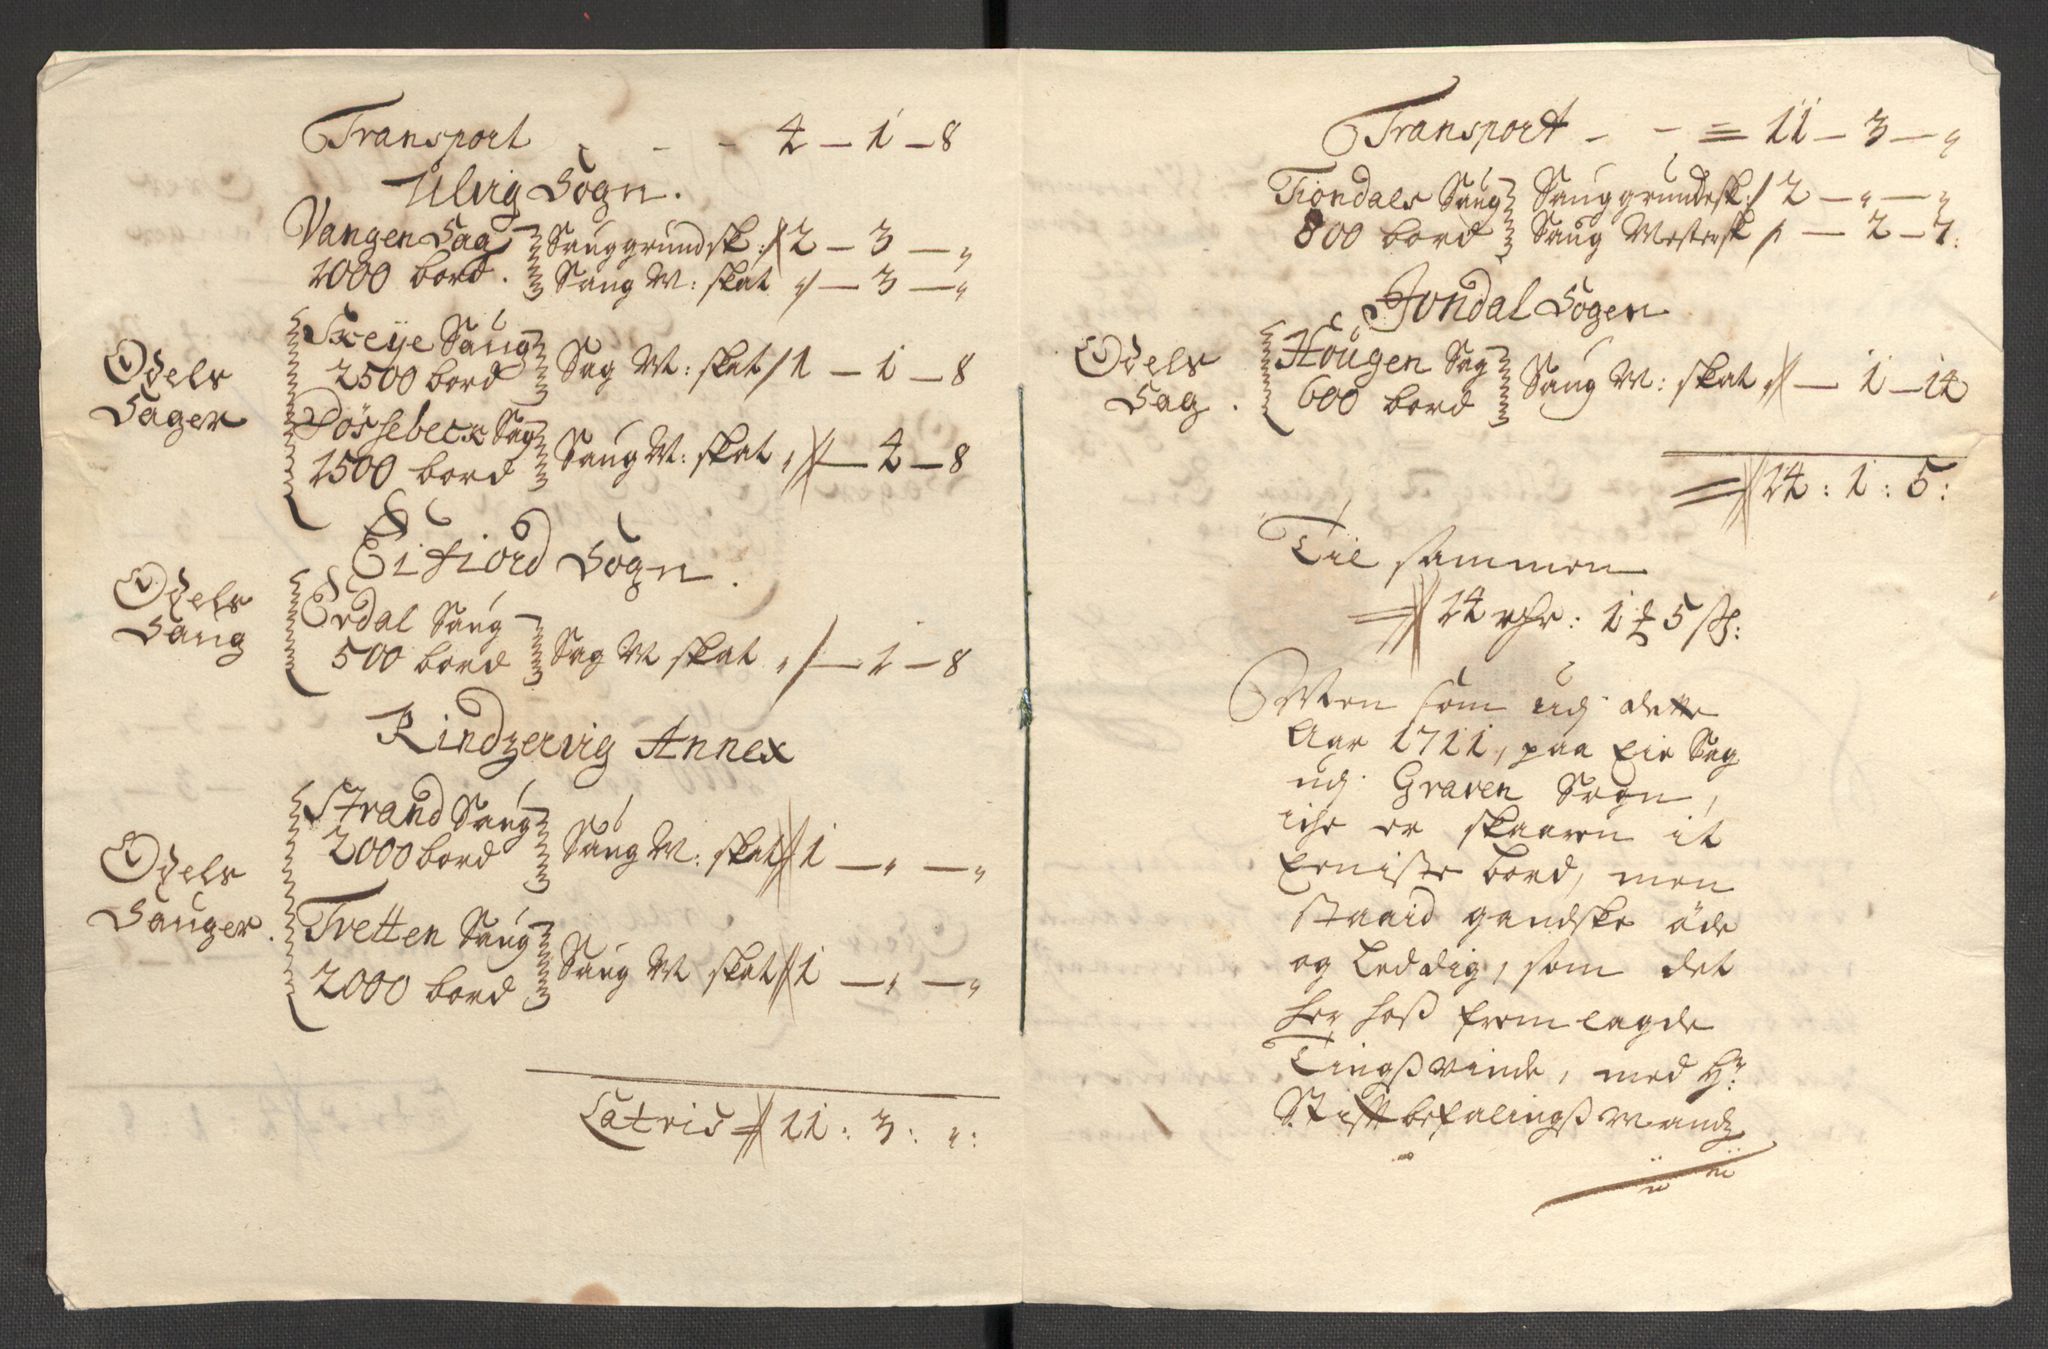 Transport - - - 4 - 1 - 8
Ulvig Sogn.
Vangen Sag Sauggrundsk: 2 - 3 - „
1000 bord. Saug M: skat „ - 3 - „
Odels
Sager
Skeije Saug
2500 bord Sag M: skat 1 - 1 - 8
Døssebeck Sag
1500 bord Saug M: skat „ - 4 - 8
Eifiord Sogn.
Odels
Saug
Erdal Saug
500 bord Sag M skat „ - 1 - 8
Kindzervig Annex
Odels
Sauger.
Strand Saug
2000 bord Saug M: skat 1 - „ - „
Tvetten Saug
2000 bord Saug M skat 1 - „ - „
Latris 11 : 3 : „ :
Transport - - 11 - 3 - „
Tiondals Saug Sauggrundesk: 2 - „ - „
800 bord Saug Mestersk - 2 - 7:
Jondal Sogen
Odels
Sag.
Hougen Sag
600 bord Saug M: skat „ - 1 - 14
14 : 1 : 5 :
Til sammen
14 rdr: 1 5 sk:
Men som udj dette
Aar 1711, paa Eie Sag
udj Graven Sogn,
iche er skaaren it
Eeniste bord, men
staaid gandske øde
og Leddig, som det
her hoss fremlagde
Tingssvinde, med Hr:
Stiftbefalingssmandz